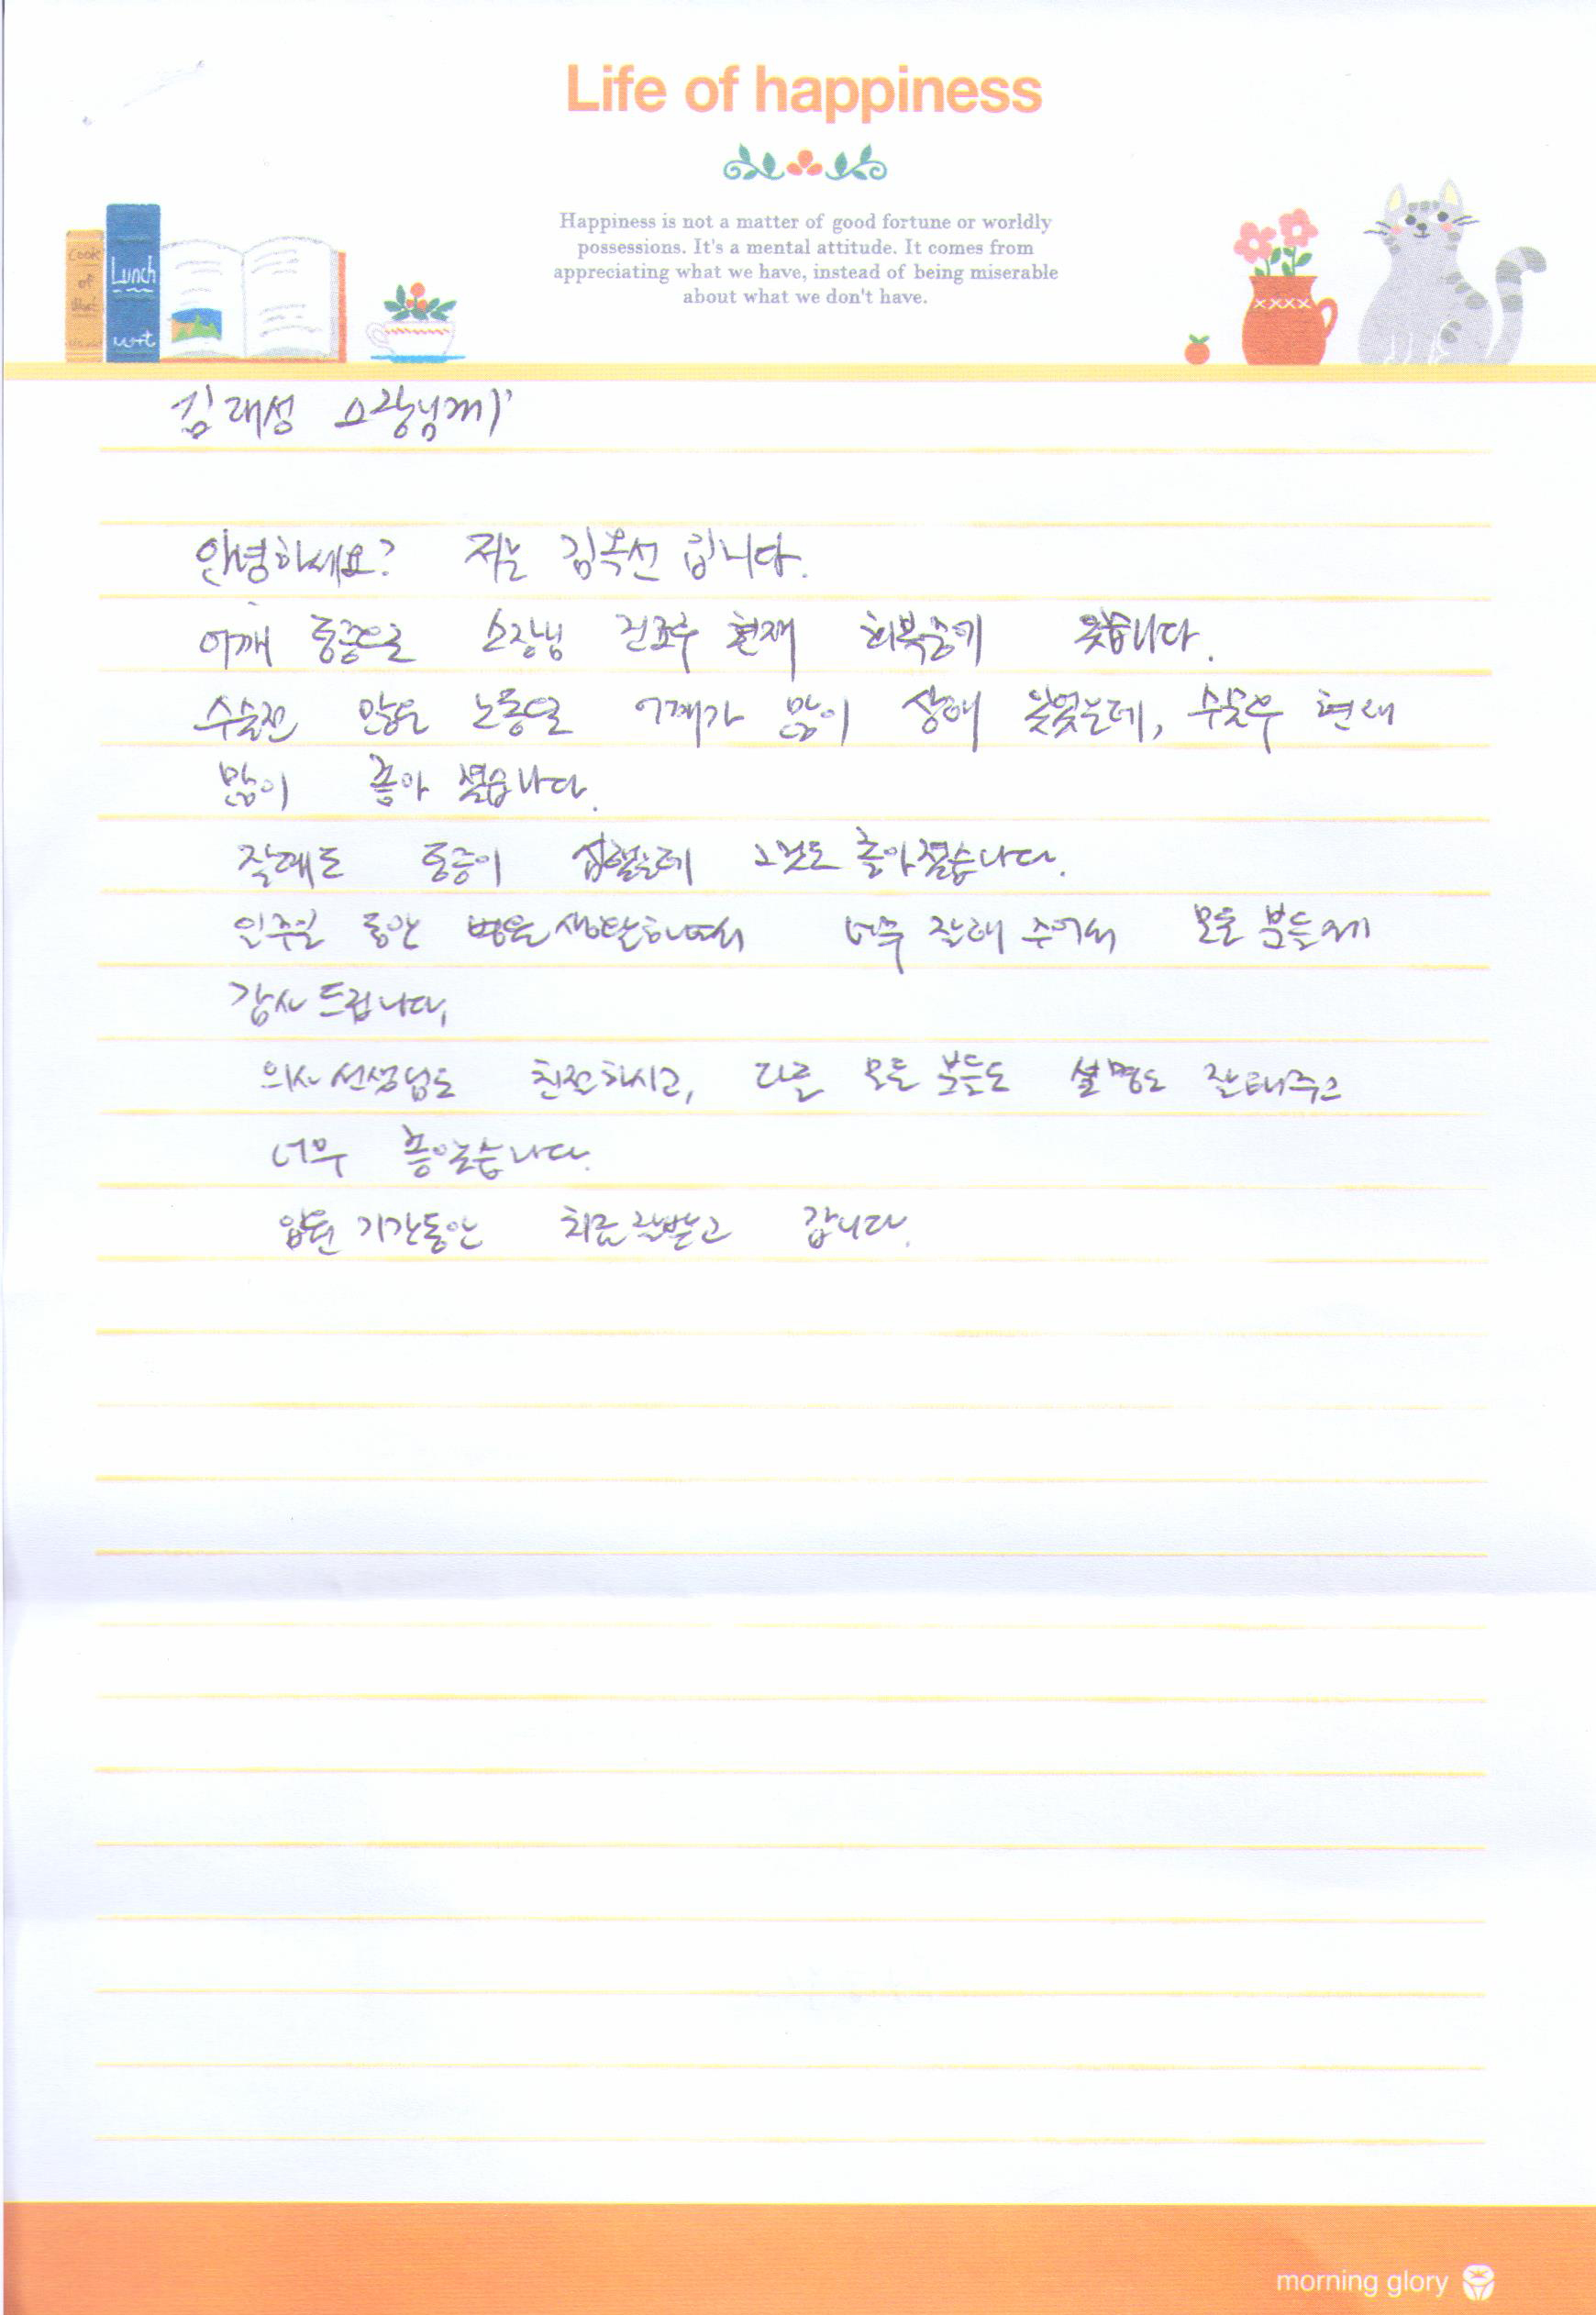 Life of happiness
Happiness is not a matter of good fortune or worldly
possessions. It's a mental attitude. It comes from
appreciating what we have, instead of being miserable
about what we don't have.
Cook
of
Lunch
김대성 소장님께
안녕하세요? 저는 김옥선 입니다.
어깨 통증으로 소장님 진료후 현재 회복중에 있습니다.
수술전 많은 노동일 어깨가 많이 상해 있었는데, 수술후 현재
많이 좋아 졌습니다.
잘때도 통증이 심했는데 그것도 좋아졌습니다.
일주일 동안 병원생활하면서 너무 잘해 주어서 모든 분들께
감사 드립니다,
의사 선생님도 친절하시고, 다른 모든 분들도 설명도 잘해주고
너무 좋았습니다.
입원 기간동안 치료 잘받고 갑니다.
morning glory